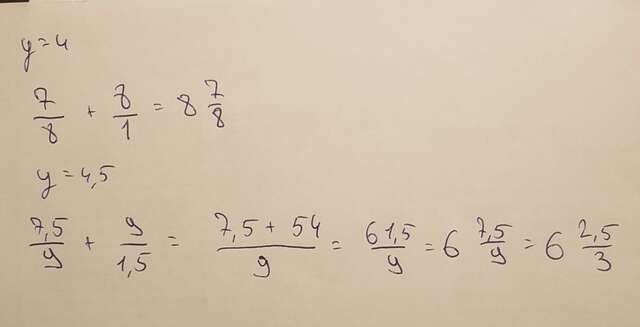 y=4
7/8 + 8/1 = 8 7/8
y = 4,5
7,5/9 + 9/1,5 = 7,5 + 54/9 = 61,5/9 = 6 7,5/9 = 6 2,5/3